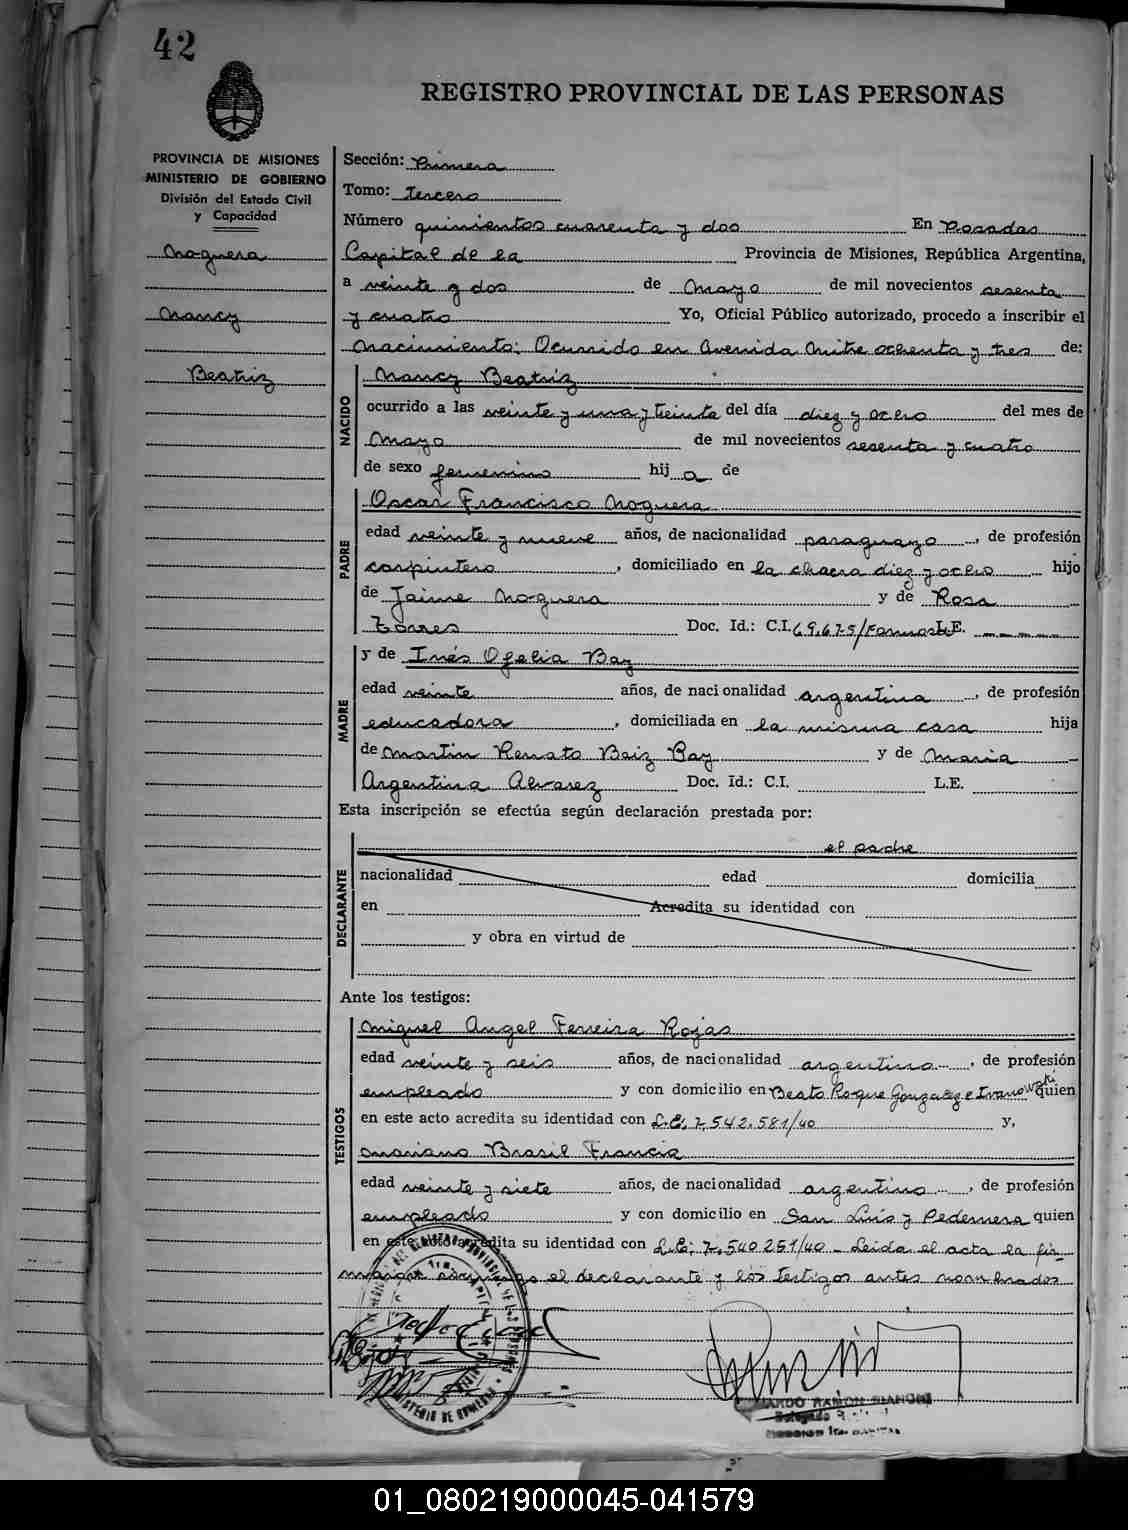 42
REGISTRO PROVINCIAL DE LAS PERSONAS
PROVINCIA DE MISIONES
MINISTERIO DE GOBIERNO
División del Estado Civil
y Capacidad
Noguera
Nancy
Beatriz
Sección: Primera
Tomo: Tercero
Número quinientos cuarenta y dos En Posadas
Capital de la Provincia de Misiones, República Argentina,
a veinte y dos de Mayo de mil novecientos sesenta
y cuatro Yo, Oficial Público autorizado, procedo a inscribir el
Nacimiento: Ocurrido en Avenida Mitre ochenta y tres de:
NACIDO
Nancy Beatriz
ocurrido a las veinte y una y treinta del día diez y ocho del mes de
Mayo de mil novecientos sesenta y cuatro
de sexo femenino hij a de
PADRE
Oscar Francisco Noguera
edad veinte y nueve años, de nacionalidad paraguayo, de profesión
carpintero, domiciliado en la chacra diez y ocho hijo
de Jaime Noguera y de Rosa
Torres Doc. Id.: C.I. 69.675/Formosa L.E. ------
MADRE
y de Inés Ofelia Bay
edad veinte años, de nacionalidad argentina, de profesión
educadora, domiciliada en la misma casa hija
de Martin Renato Baiz Bay y de Maria
Argentina Alvarez Doc. Id.: C.I. L.E.
Esta inscripción se efectúa según declaración prestada por:
DECLARANTE
el padre
nacionalidad edad domicilia
en Acredita su identidad con
y obra en virtud de
Ante los testigos:
TESTIGOS
Miguel Angel Ferreira Rojas
edad veinte y seis años, de nacionalidad argentino, de profesión
empleado y con domicilio en Beato Roque Gonzalez e Ivanowzki quien
en este acto acredita su identidad con L.E; 7,542.581/40 y,
Mariano Brasil Francia
edad veinte y siete años, de nacionalidad argentino, de profesión
empleado y con domicilio en San Luís y Pedernera quien
en este acto acredita su identidad con L.E; 7,540251/40 - Leida el acta la fir-
man conmigo el declarante y los testigos antes nombrados
RAMON BIANCHI
01_080219000045-041579